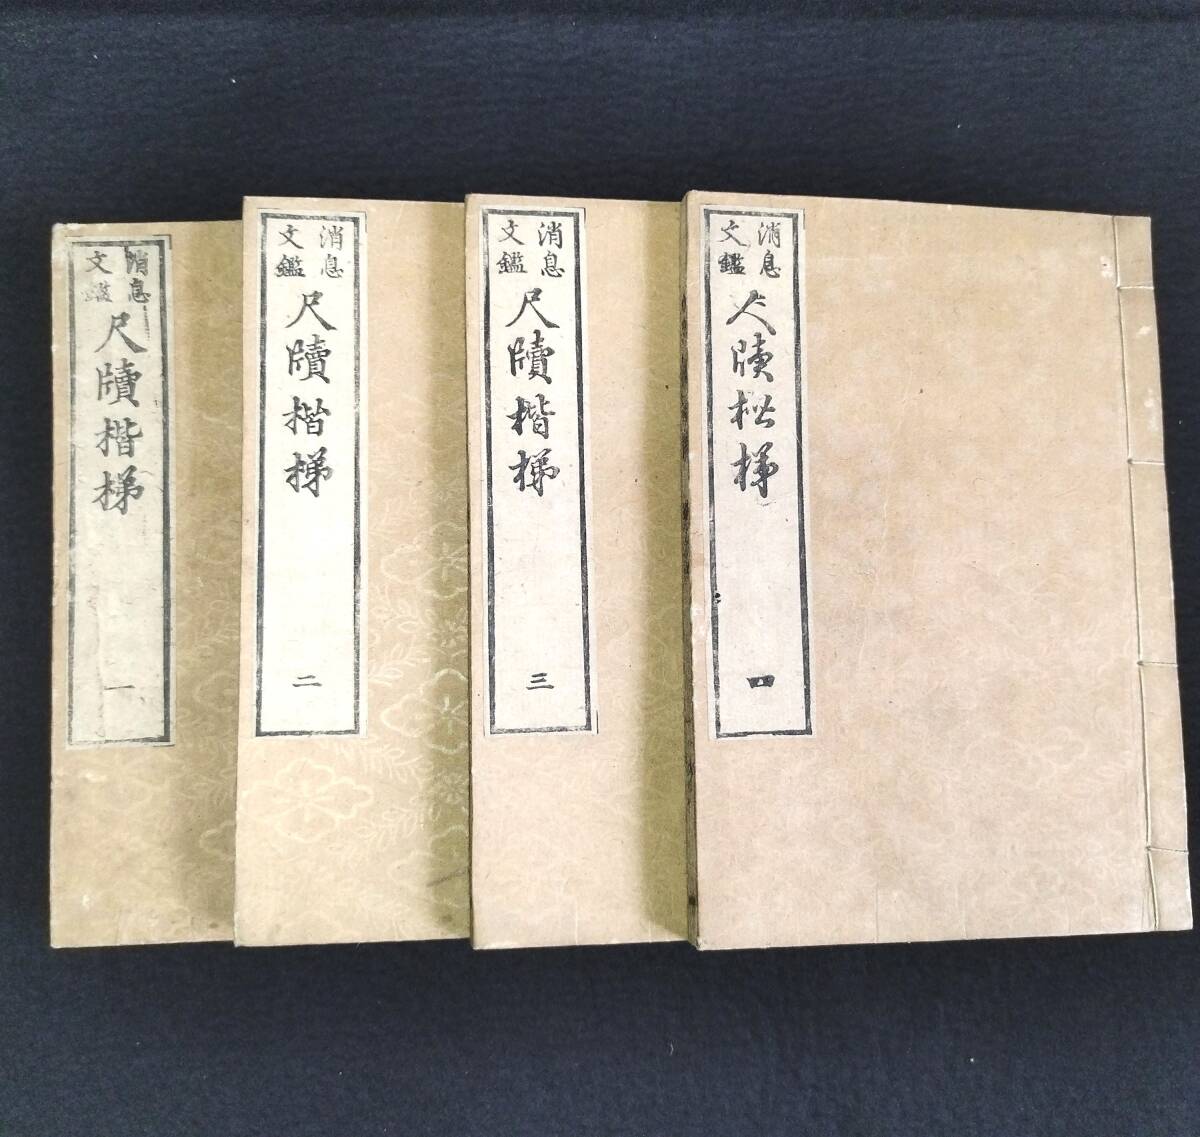 消息
文鑑
尺牘楷梯
一
消息
文鑑
尺牘楷梯
二
消息
文鑑
尺牘楷梯
三
消息
文鑑
尺牘楷梯
四